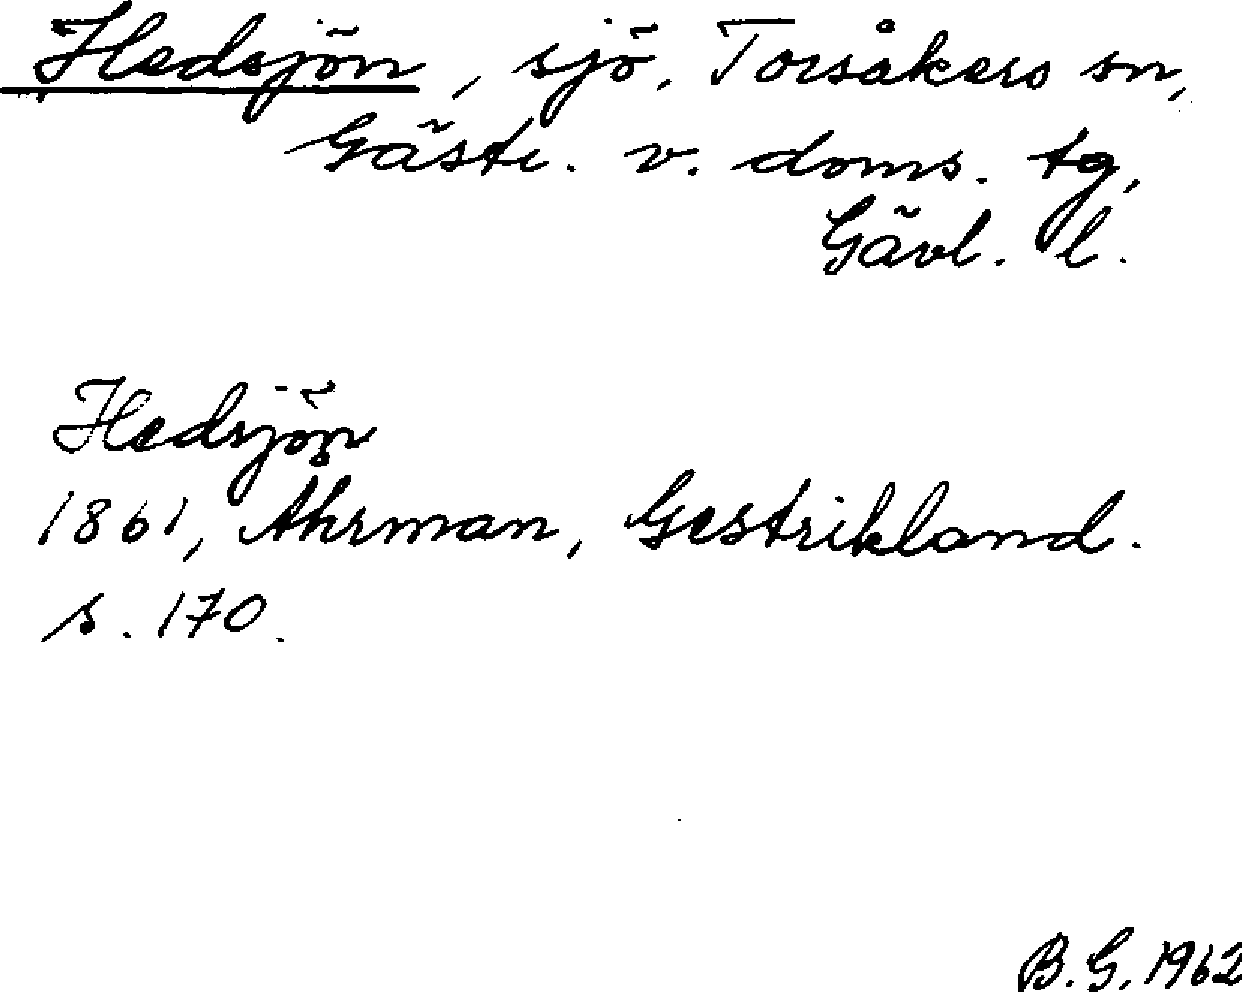 Hedsjön, sjö, Torsåkers sn,
Gästr. v. doms. tg,
Gävl. l.
Hedsjön
1861, Ahrman, Gestrikland.
s. 170.
B. G. 1962